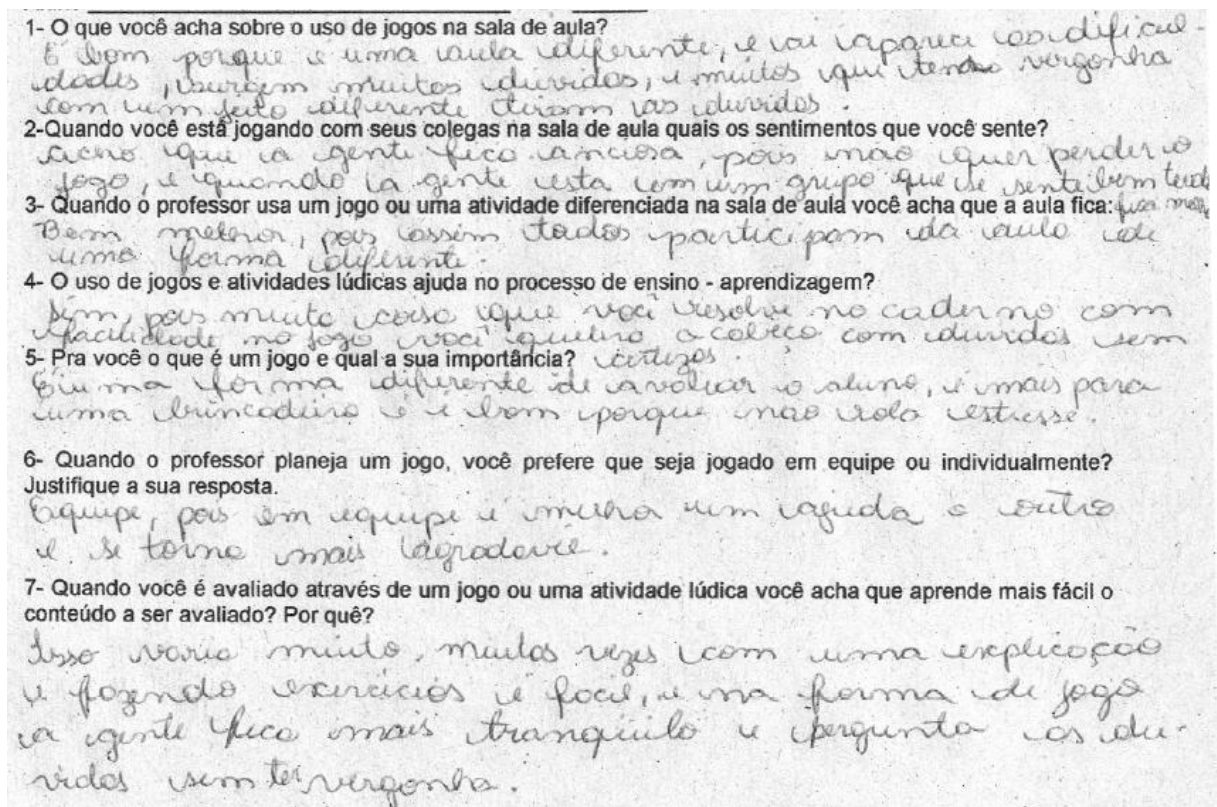 1- O que você acha sobre o uso de jogos na sala de aula?
É bom porque é uma aula diferente, e vai aparece as dificul-
dades, surgem muitas duvidas, e muitos que tem vergonha
com um jeito diferente tiram as duvidas.
2-Quando você está jogando com seus colegas na sala de aula quais os sentimentos que você sente?
Acho que a gente fica anciosa, pois não quer perder o
jogo, e quando a gente esta em um grupo que se sente bem tudo
3- Quando o professor usa um jogo ou uma atividade diferenciada na sala de aula você acha que a aula fica: fica mais
Bem melhor, pois assim todos participam da aula de
uma forma diferente.
4- O uso de jogos e atividades lúdicas ajuda no processo de ensino - aprendizagem?
Sim, pois muita coisa que você resolve no caderno com
facilidade no jogo você quebra a cabeça com duvidas sem
5- Pra você o que é um jogo e qual a sua importância? certezas.
É uma forma diferente de avaliar o aluno, é mais para
uma brincadeira e é bom porque não rola estresse.
6- Quando o professor planeja um jogo, você prefere que seja jogado em equipe ou individualmente?
Justifique a sua resposta.
Equipe, pois em equipe é melhor um ajuda o outro
e se torna mais agradavel.
7- Quando você é avaliado através de um jogo ou uma atividade lúdica você acha que aprende mais fácil o
conteúdo a ser avaliado? Por quê?
Isso varia muito, muitas vezes com uma explicação
e fazendo exercicios é facil, e na forma de jogo
a gente fica mais tranquilo e pergunta as du-
vidas sem ter vergonha.